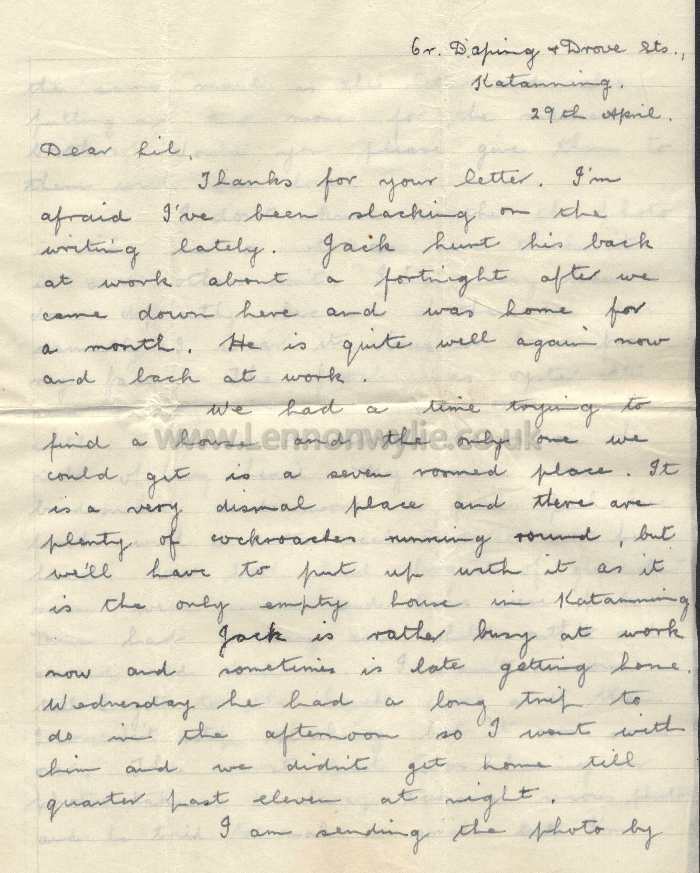 Cr. Daping & Drove Sts.,
Katanning.
29th April.
Dear Lil,
Thanks for your letter. I'm
afraid I've been slacking on the
writing lately. Jack hurt his back
at work about a fortnight after we
came down here and was home for
a month. He is quite well again now
and back at work.
We had a time trying to
find a house and the only one we
could get is a seven roomed place. It
is a very dismal place and there are
plenty of cockroaches running round, but
we'll have to put up with it as it
is the only empty house in Katanning
Jack is rather busy at work
now and sometimes is late getting home.
Wednesday he had a long trip to
do in the afternoon so I went with
him and we didn't get home till
quarter past eleven at night.
I am sending the photo by
www.Lennonwylie.co.uk